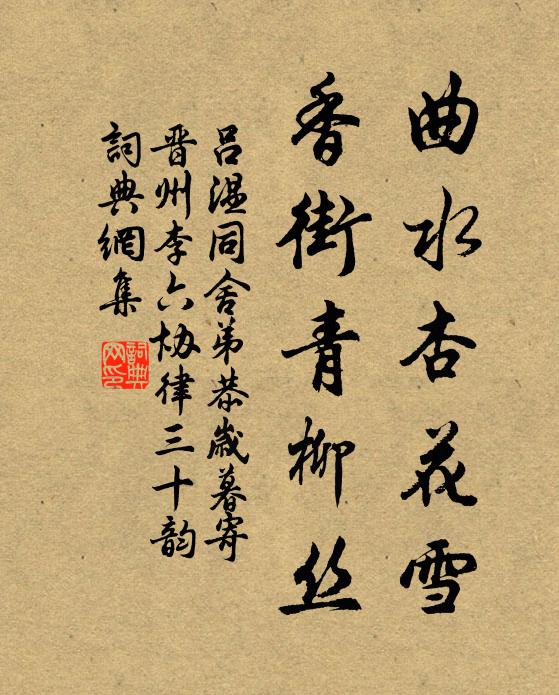 曲水杏花雪
香街青柳丝
吕温同舍弟恭岁暮寄
晋州李六协律三十韵
词典网集
词典网印